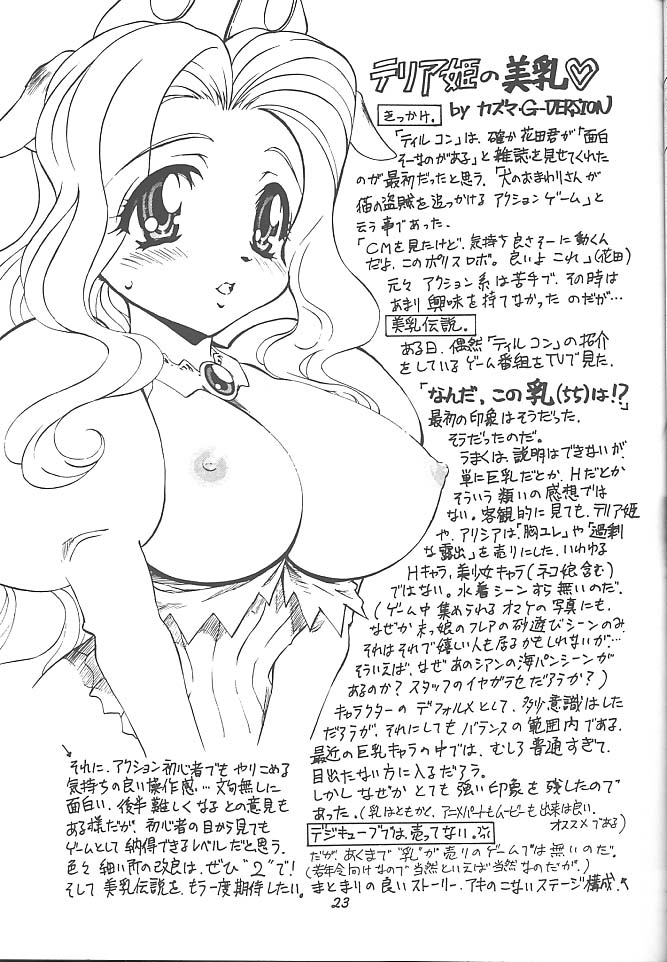 テリア姫の美乳♡
by カズマ・G-VERSION
きっかけ。
「テイルコン」は、確か花田君が「面白
そーなのがある」と雑誌を見せてくれた
のが最初だったと思う。「犬のおまわりさんが
猫の盗賊を追っかけるアクションゲーム」と
云う事であった。
「CMを見たけど、気持ち良さそーに動くん
だよ、このポリスロボ。良いよこれ」(花田)
元々アクション系は苦手で、その時は
あまり興味を持てなかったのだが…
美乳伝説。
ある日、偶然「テイルコン」の紹介
をしているゲーム番組をTVで見た。
「なんだ、この乳(ちち)は!?」
最初の印象はそうだった。
そうだったのだ。
うまくは、説明はできないが、
単に巨乳だとか、Hだとか
そういう類いの感想では
ない。客観的に見ても、テリア姫
や、アリシアは「胸ユレ」や「過剰
な露出」を売りにした、いわゆる
Hキャラ、美少女キャラ(ネコ娘含む)
ではない。水着シーンすら無いのだ。
(ゲーム中集められるオマケの写真にも、
なぜか末っ娘のフレアの砂遊びシーンのみ。
それはそれで嬉しい人も居るかもしれないが…
そういえば、なぜあのシアンの海パンシーンが
あるのか?スタッフのイヤガラセだろうか?)
キャラクターのデフォルメとして、多少意識はした
だろうが、それにしてもバランスの範囲内である。
最近の巨乳キャラの中では、むしろ普通すぎて、
目出たない方に入るだろう。
しかしなぜかとても強い印象を残したので
あった。(乳はともかく、アニメパートもムービーも出来は良い。
オススメである)
デジキューブでは売ってない。
だが、あくまで"乳"が売りのゲームでは無いのだ。
(若年令向けなので当然といえば当然なのだが)
まとまりの良いストーリー、アキのこないステージ構成、
それに、アクション初心者でもやりこめる
気持ちの良い操作感…文句無しに
面白い。後半難しくなるとの意見も
ある様だが、初心者の目から見ても
ゲームとして納得できるレベルだと思う。
色々細い所の改良は、ぜひ"2"で!
そして美乳伝説を、もう一度期待したい。
23